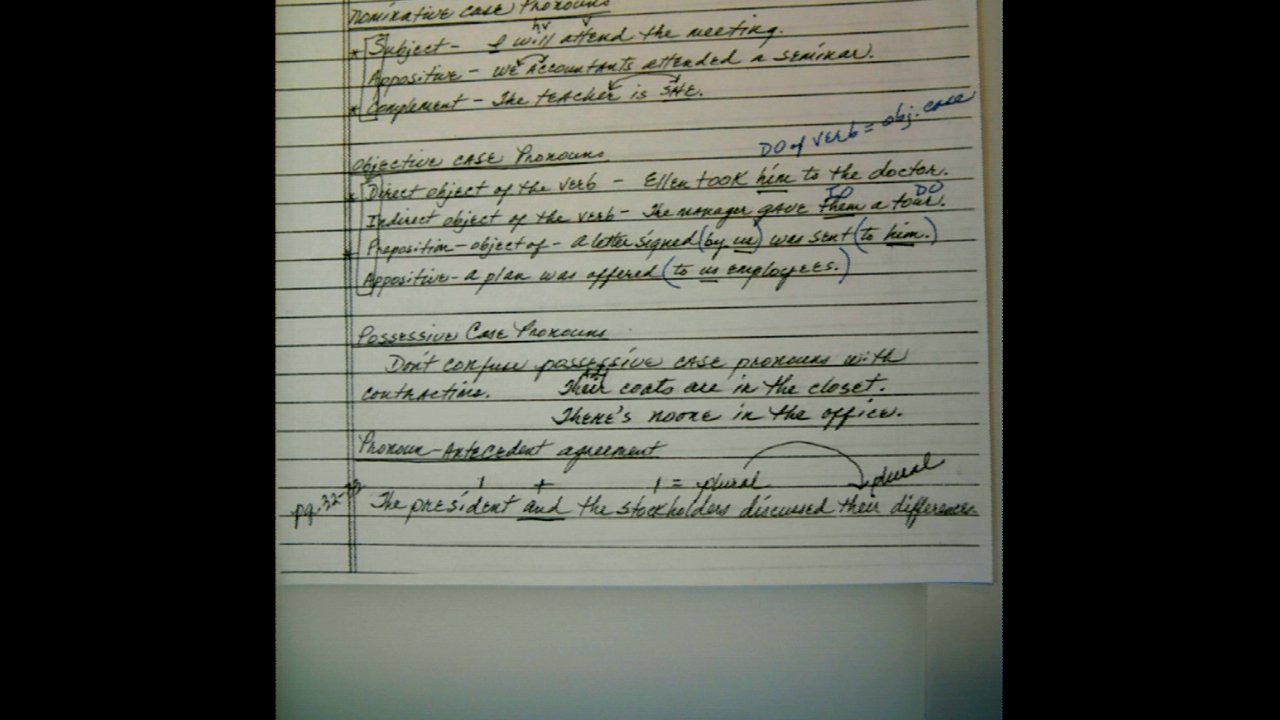 Nominative Case Pronouns
hv v
* Subject - I will attend the meeting.
Appositive - we Accountants attended a seminar.
* Complement - The teacher is SHE.
DO of verb = obj. case
Objective Case Pronouns
* Direct object of the verb - Ellen took him to the doctor.
IO DO
Indirect object of the verb - The manager gave them a tour.
* Preposition - object of - a letter signed (by us) was sent (to him.)
Appositive - a plan was offered (to us employees.)
Possessive Case Pronouns
Don't confuse possessive case pronouns with
contractions. Their coats are in the closet.
There's noone in the office.
Pronoun-Antecedent agreement
1 + 1 = plural plural
pg. 32- The president and the stockholders discussed their differences